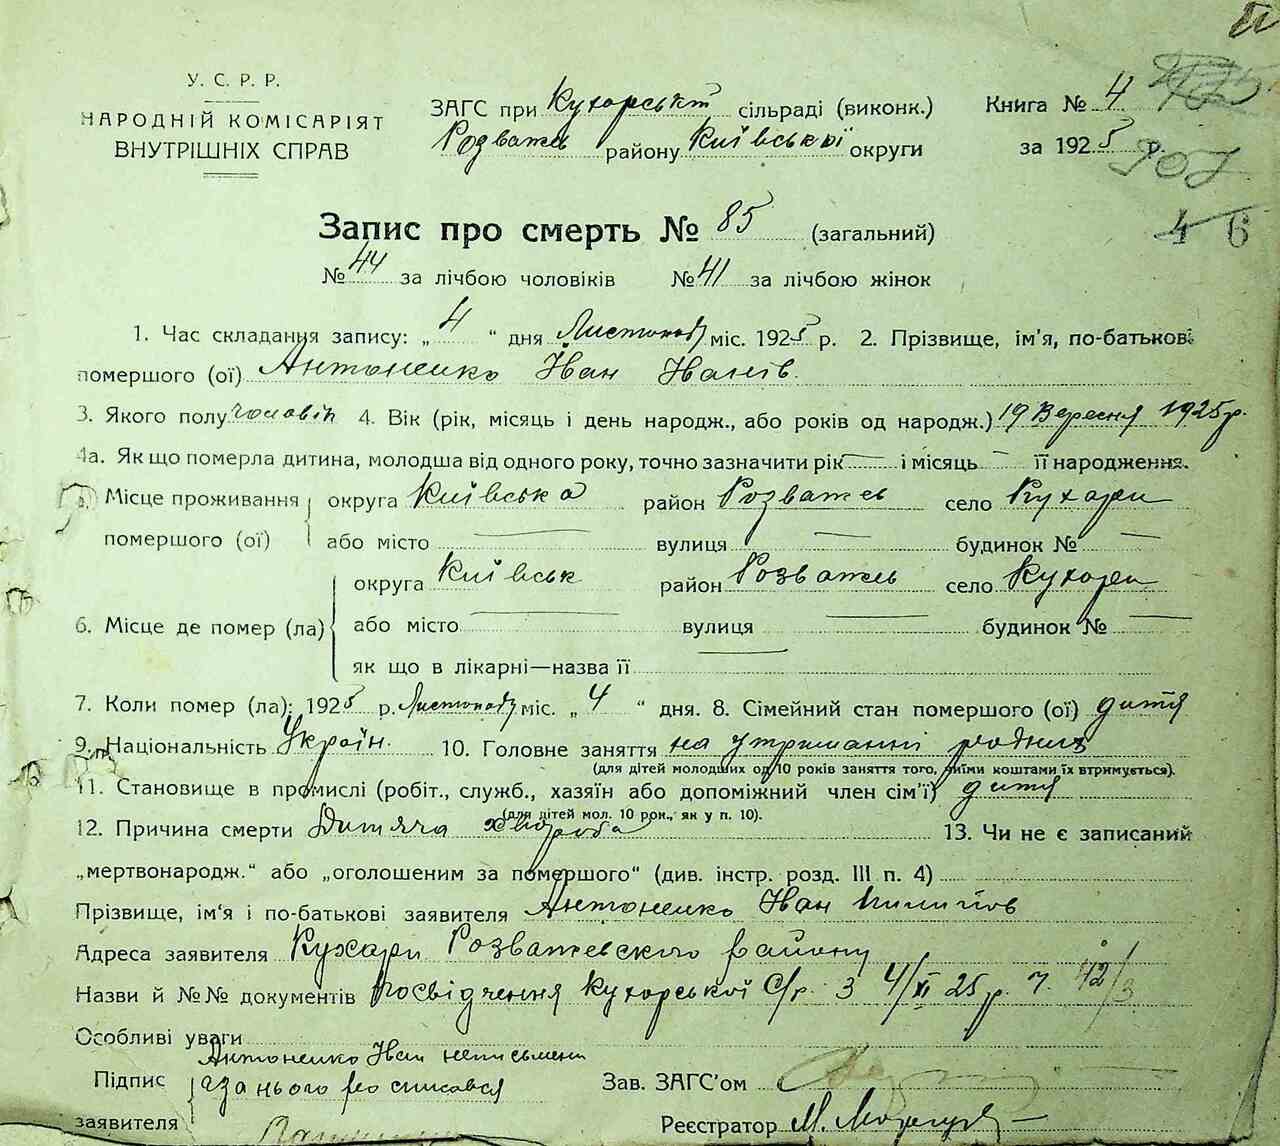 У. С. Р. Р.
НАРОДНІЙ КОМІСАРІЯТ
ВНУТРІШНІХ СПРАВ
ЗАГС при Кухорській сільраді (виконк.)
Розважев району Київської округи
Книга № 4
за 1925 р.
207
4 6
Запис про смерть № 85 (загальний)
№ 44 за лічбою чоловіків № 41 за лічбою жінок
1. Час складання запису: „ 4 “ дня Листопаду міс. 1925 р. 2. Прізвище, ім'я, по-батькові
помершого (ої) Антоненко Іван Іванів.
3. Якого полу чоловік 4. Вік (рік, місяць і день народж., або років од народж.) 19 Вересня 1925 р.
4а. Як що померла дитина, молодша від одного року, точно зазначити рік — і місяць — її народження.
Місце проживання округа Київська район Розважев село Кухари
помершого (ої) або місто — вулиця — будинок № —
округа Київськ район Розважев село Кухари
6. Місце де помер (ла) або місто — вулиця — будинок № —
як що в лікарні—назва її —
7. Коли помер (ла): 1925 р. Листопаду міс. „ 4 “ дня. 8. Сімейний стан помершого (ої) дитя
9. Національність Україн. 10. Головне заняття на утриманні родних
(для дітей молодших од 10 років заняття того, чиїми коштами їх втримується).
11. Становище в промислі (робіт., служб., хазяїн або допоміжний член сім'ї) дитя
(для дітей мол. 10 рок., як у п. 10).
12. Причина смерти Дитяча хвороба 13. Чи не є записаний
„мертвонародж.“ або „оголошеним за помершого“ (див. інстр. розд. III п. 4)
Прізвище, ім'я і по-батькові заявителя Антоненко Іван
Адреса заявителя Кухари Розважевского району
Назви й №№ документів Посвідчення Кухорської С/р. З 4/XI 25 р. 42/3
Особливі уваги
Антоненко Іван неписьмени
Підпис а за нього росписався
заявителя
Зав. ЗАГС'ом
Реєстратор М.